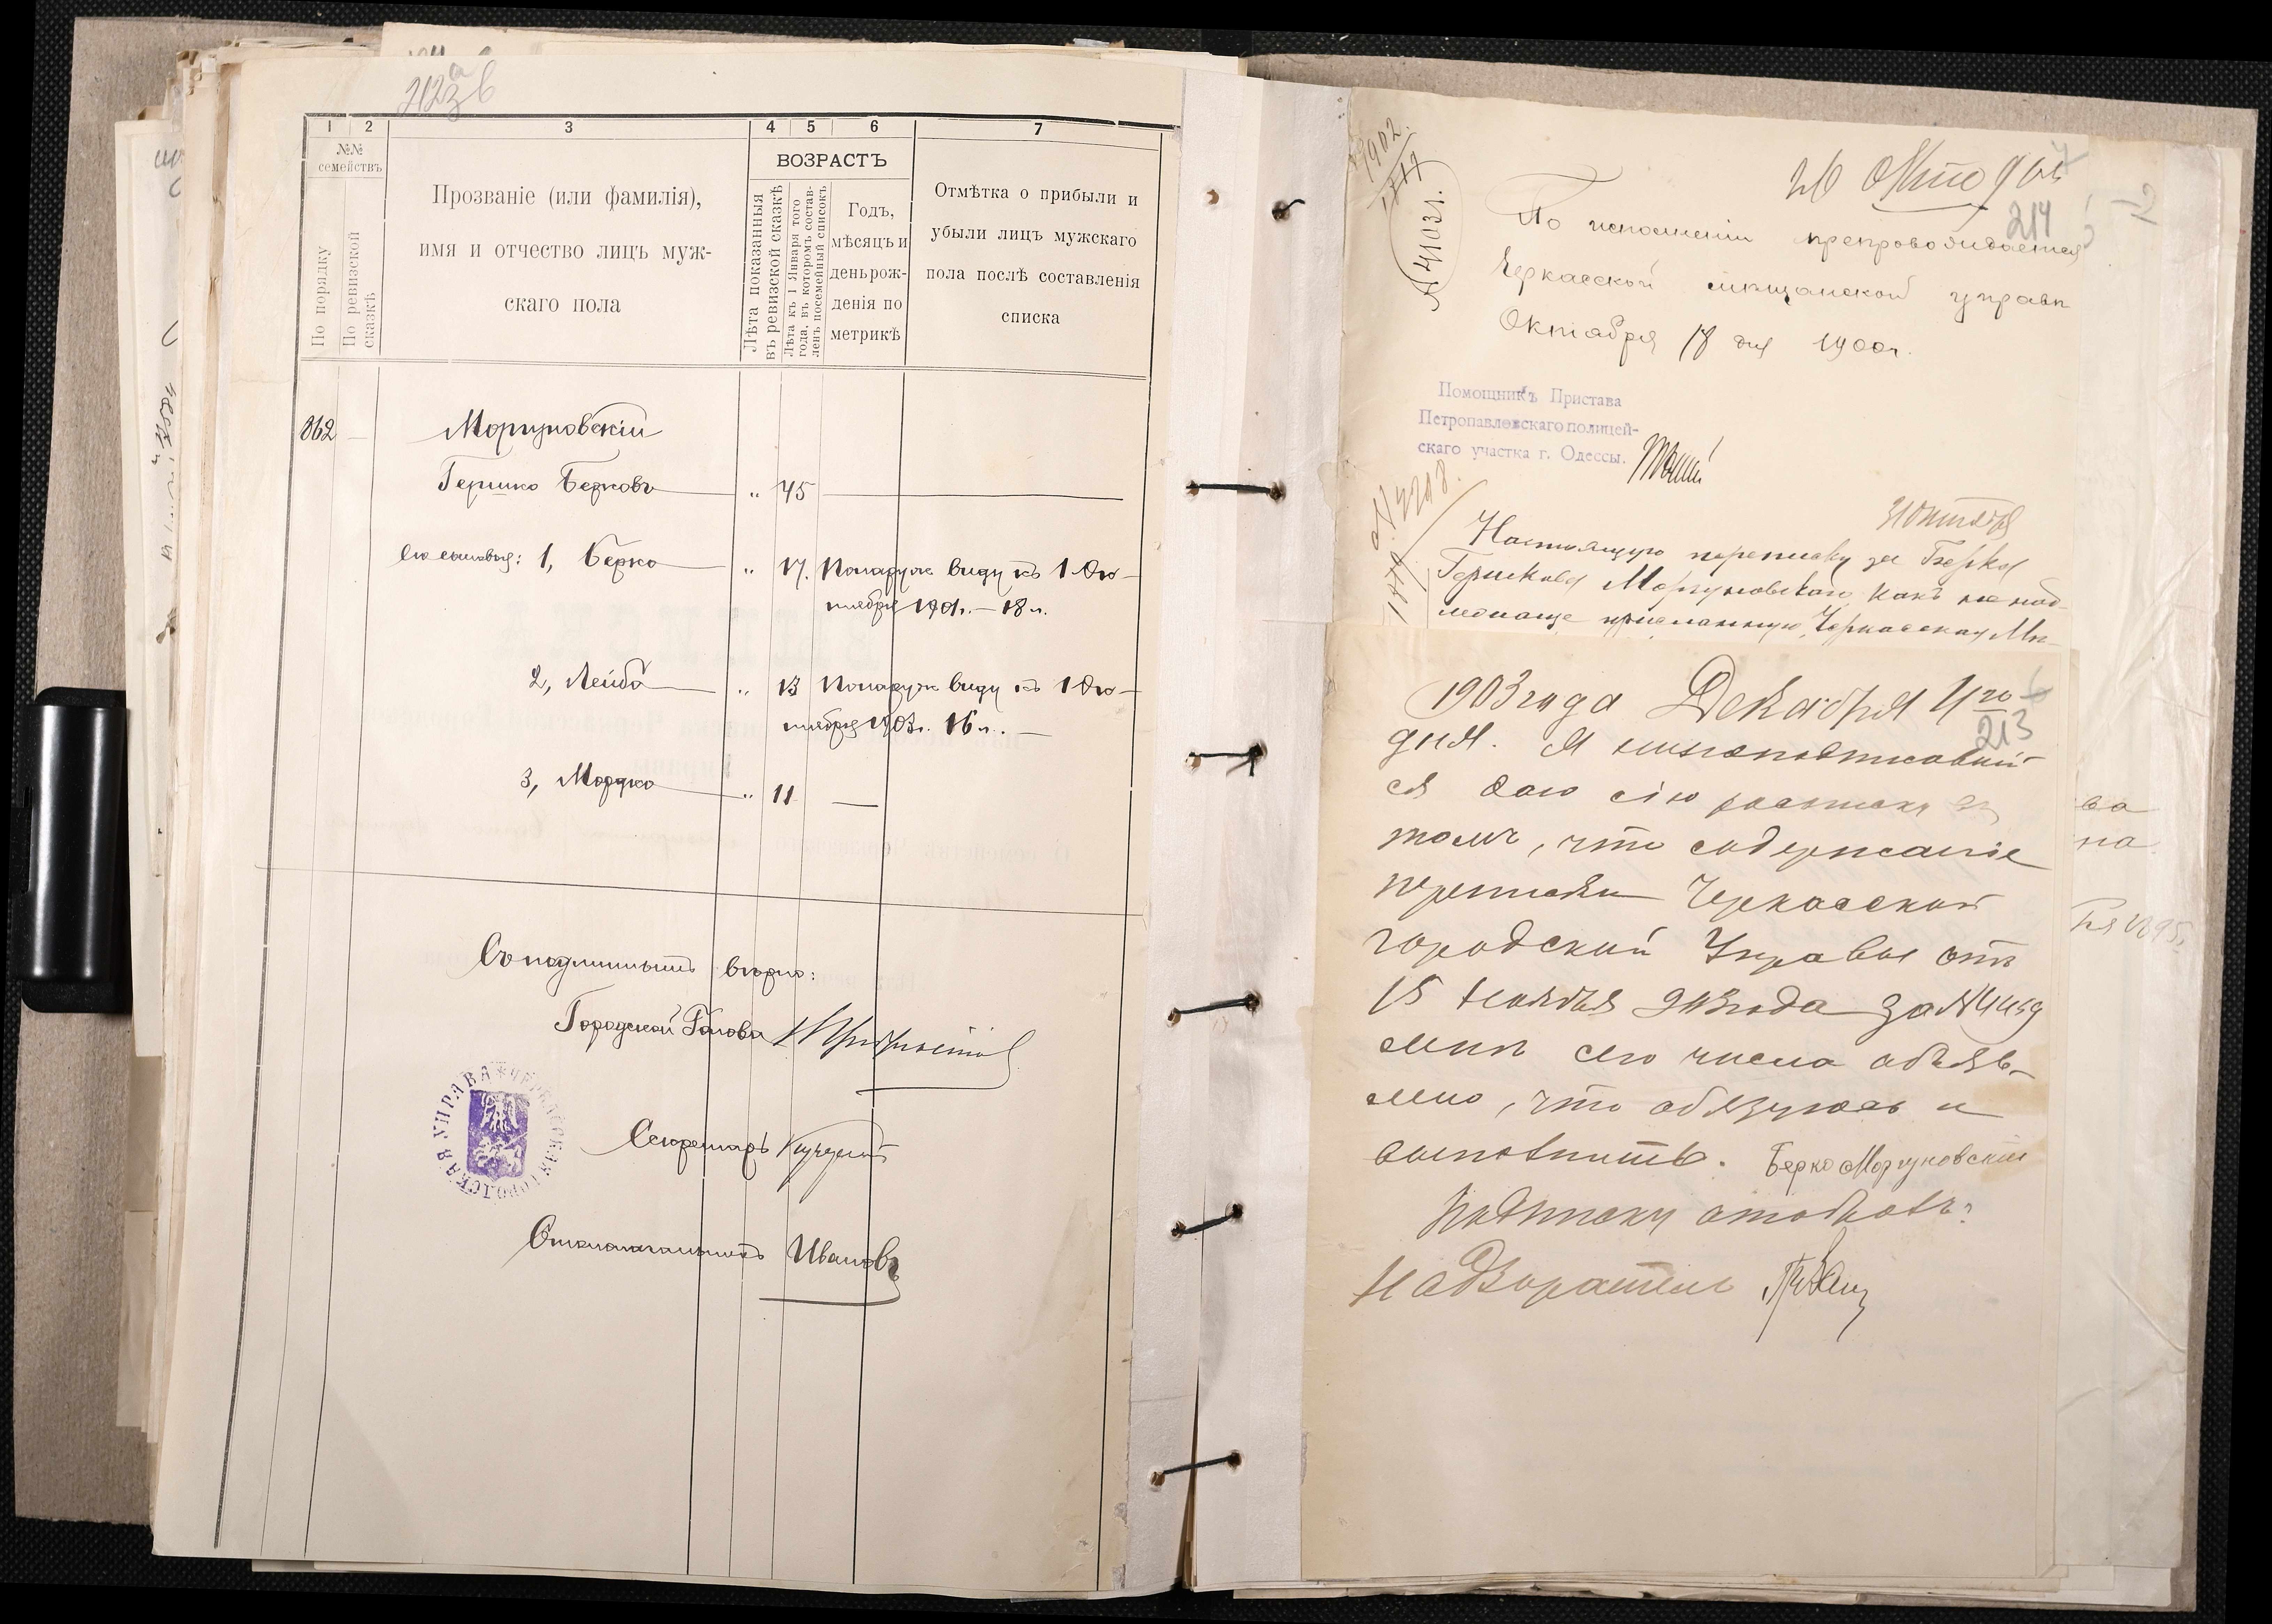 212
1 2 3 4 5 6 7
№№ семействъ
По порядку
По ревизской сказкѣ
Прозваніе (или фамилія),
имя и отчество лицъ муж-
скаго пола
ВОЗРАСТЪ
Лѣта показанныя въ ревизской сказкѣ
Лѣта къ 1 Января того года, въ которомъ состав-ленъ посемейный списокъ
Годъ,
мѣсяцъ и
день рож-
денія по
метрикѣ
Отмѣтка о прибыли и
убыли лицъ мужскаго
пола послѣ составленія
списка
862
Моргуновскій
Гершко Берковъ " 45
Его сыновья: 1, Берко " 17. По наруж виду къ 1 Ок-
тября 1901г. — 18 л.
2, Лейба " 13 По наруж виду къ 1 Ок-
тября 1903г. 16 л. —
3, Мордко " 11 —
Съ подлиннымъ вѣрно:
Городской Голова
Секретарь
Столоначальникъ Ивановъ
ЧЕРКАССКАЯ ГОРОДСКАЯ УПРАВА
1902
214
По исполненіи препровождается
Черкасской мѣщанской управѣ
Октября 18 дня 1900г.
Помощникъ Пристава
Петропавловскаго полицей-
скаго участка г. Одессы.
Настоящую переписку за Берка
Гершкова Моргуновскаго какъ не над-
лежаще присланную, Черкасская Мѣ-
1903 года Декабря 4го
213
дня. Я нижеподписавшій-
ся даю сію расписку въ
томъ, что содержаніе
переписки Черкасской
городской Управы отъ
15 Ноября 903 года за № 4459
мнѣ сего числа объяв-
лено, что обязуюсь и
выполнить. Берко Моргуновскій
Подписку отобралъ:
Надзиратель